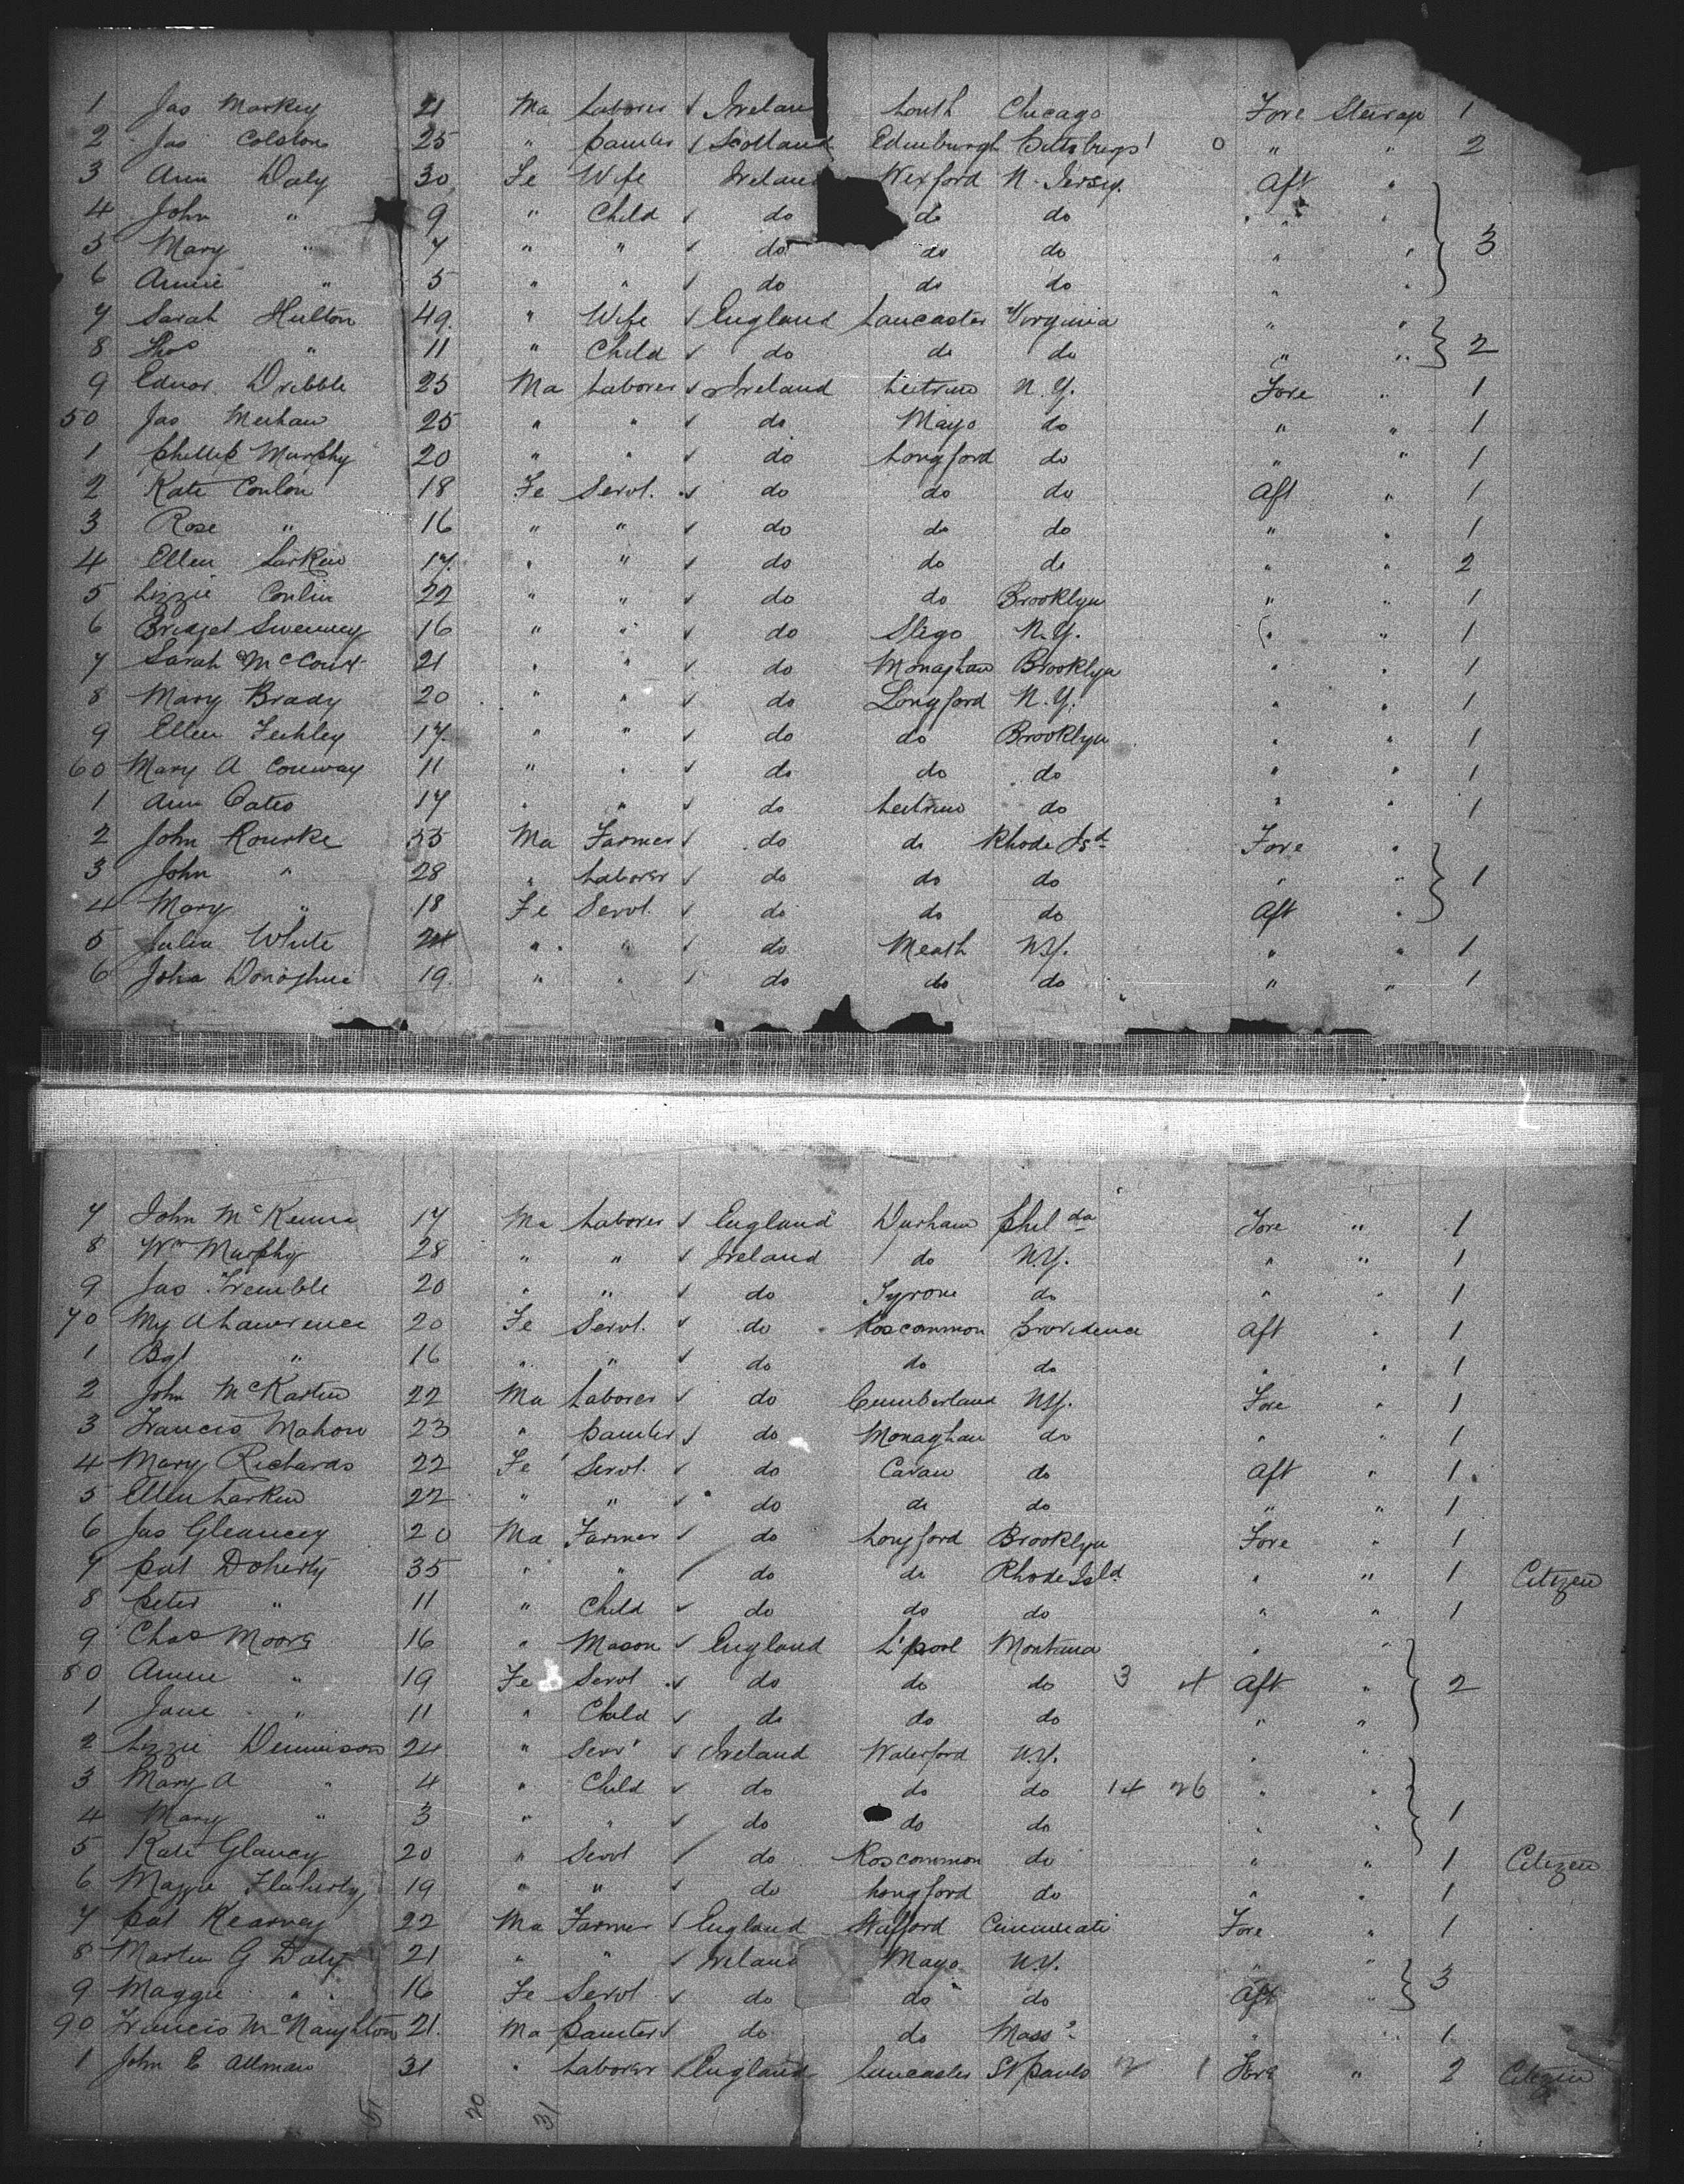 1 Jas Markey 21 Ma Laborer √ Ireland Louth Chicago Fore Steerage 1
2 Jas Colston 25 " Painter √ Scotland Edinburgh Pittsburgs 0 " " 2
3 Ann Daly 30 Fe Wife Ireland Wexford N. Jersy. Aft "
4 John " 9 " Child √ do do do " "
5 Mary " 7 " " √ do do do " " } 3
6 Annie " 5 " " √ do do do " "
7 Sarah Hulton 49. " Wife √ England Lancaster Virginia " "
8 Thos " 11 " Child √ do do do " " } 2
9 Edwar. Dribble 25 Ma Laborer √ Ireland Leitrim N.Y. Fore " 1
50 Jas Meehan 25 " " √ do Mayo do " " 1
1 Phillip Murphy 20 " " √ do Longford do " " 1
2 Kate Conlon 18 Fe Servt. √ do do do Aft " 1
3 Rose " 16 " " √ do do do " " 1
4 Ellen Larkin 17. " " √ do do do " " 2
5 Lizzie Conlin 22 " " √ do do Brooklyn " " 1
6 Bridget Sweeney 16 " " √ do Sligo N.Y. " " 1
7 Sarah McCourt 21 " " √ do Monaghan Brooklyn " " 1
8 Mary Brady 20 " " √ do Longford N.Y. " " 1
9 Ellen 17. " " √ do do Brooklyn " " 1
60 Mary A Conway 11 " " √ do do do " " 1
1 Ann Oates 17 " " √ do Leitrim do " " 1
2 John Rourke 55 Ma Farmer √ do do Rhode Isd Fore "
3 John " 28 " Laborer √ do do do " " } 1
4 Mary " 18 Fe Servt. √ do do do Aft "
5 Julia White 24 " " √ do Meath N.Y. " " 1
6 Joha Donoghue 19. " " √ do do do " " 1
7 John McKenna 17 Ma Laborer √ England Durham Philda Fore " 1
8 Wm Murphy 28 " " √ Ireland do N.Y. " " 1
9 Jas Tremble 20 " " √ do Tyrone do " " 1
70 My A Lawrence 20 Fe Servt. √ do Roscommon Providence Aft " 1
1 Bgt " 16 " " √ do do do " " 1
2 John McKartin 22 Ma Laborer √ do Cumberland N.Y. Fore " 1
3 Francis Mahon 23 " Painter √ do Monaghan do " " 1
4 Mary Richards 22 Fe Servt. √ do Cavan do Aft " 1
5 Ellen Larkin 22 " " √ do do do " " 1
6 Jas Gleancey 20 Ma Farmer √ do Longford Brooklyn Fore " 1
7 Pat Doherty 35 " " / do do Rhode Isld. " " 1 Citizen
8 Peter " 11 " Child √ do do do " " 1
9 Chas Moore 16 " Mason √ England L'pool Montana " "
80 Annie " 19 Fe Servt √ do do do 3 4 Aft " } 2
1 Jane " 11 " Child √ do do do " "
2 Lizzie Dennison 24 " Servt √ Ireland Waterford N.Y. " "
3 Mary A " 4 " Child √ do do do 14 26 " "
4 Mary " 3 " " √ do do do " " } 1
5 Kate Glancy 20 " Servt / do Roscommon do " " 1 Citizen
6 Maggie Flaherty 19 " " √ do Longford do " " 1
7 Pat Kearney 22 Ma Farmer √ England Stafford Cincinnati Fore " 1
8 Martin G Daly 21 " " √ Ireland Mayo N.Y. " "
9 Maggie " 16 Fe Servt √ do do do Aft " } 3
90 Francis McNaughton 21. Ma Painter √ do do Mass " " 1
1 John E Allman 31 " Laborer England Lancaster St Pauls 1 Fore " 2 Citizen
51 20 31